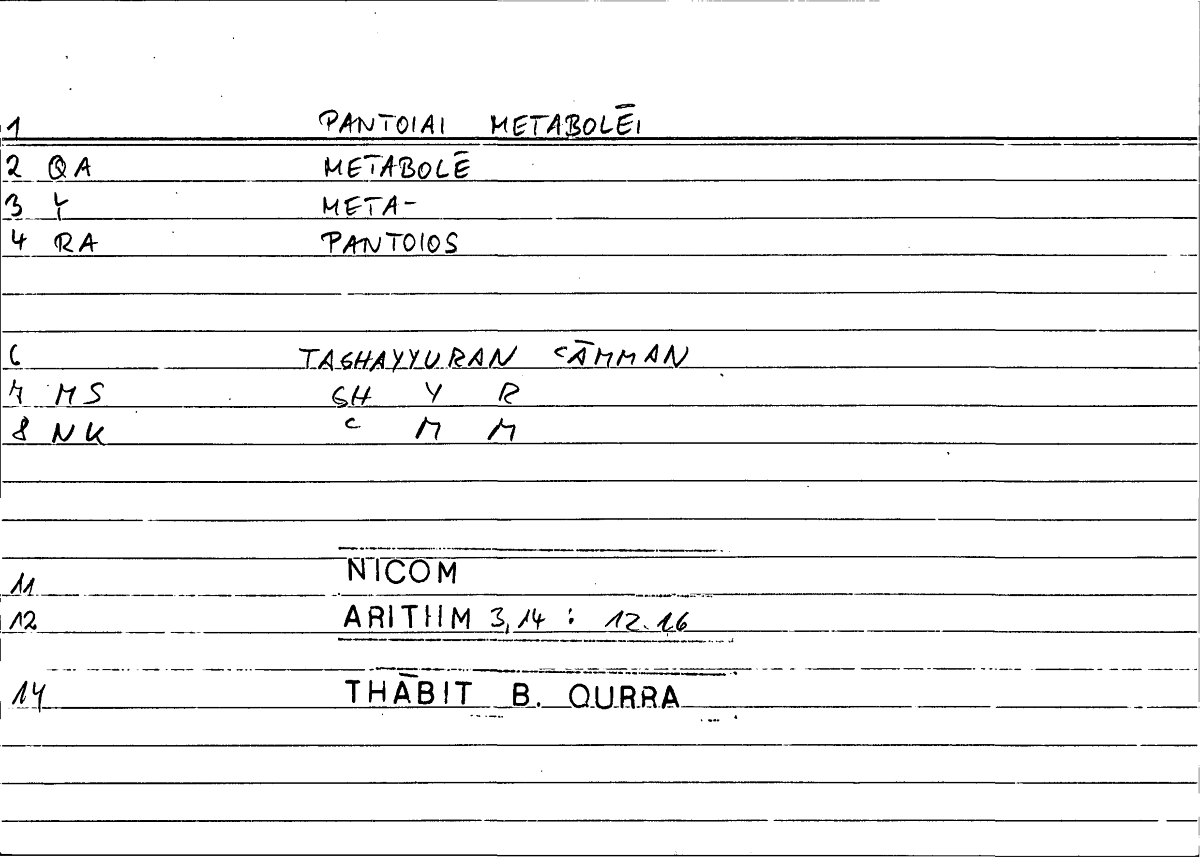 1 PANTOIAI METABOLĒI
2 QA METABOLĒ
3 Y META-
4 RA PANTOIOS
6 TAGHAYYURAN ʿĀMMAN
7 MS GH Y R
8 NK ʿ M M
11 NICOM
12 ARITHM 3,14 : 12.16
14 THĀBIT B. QURRA